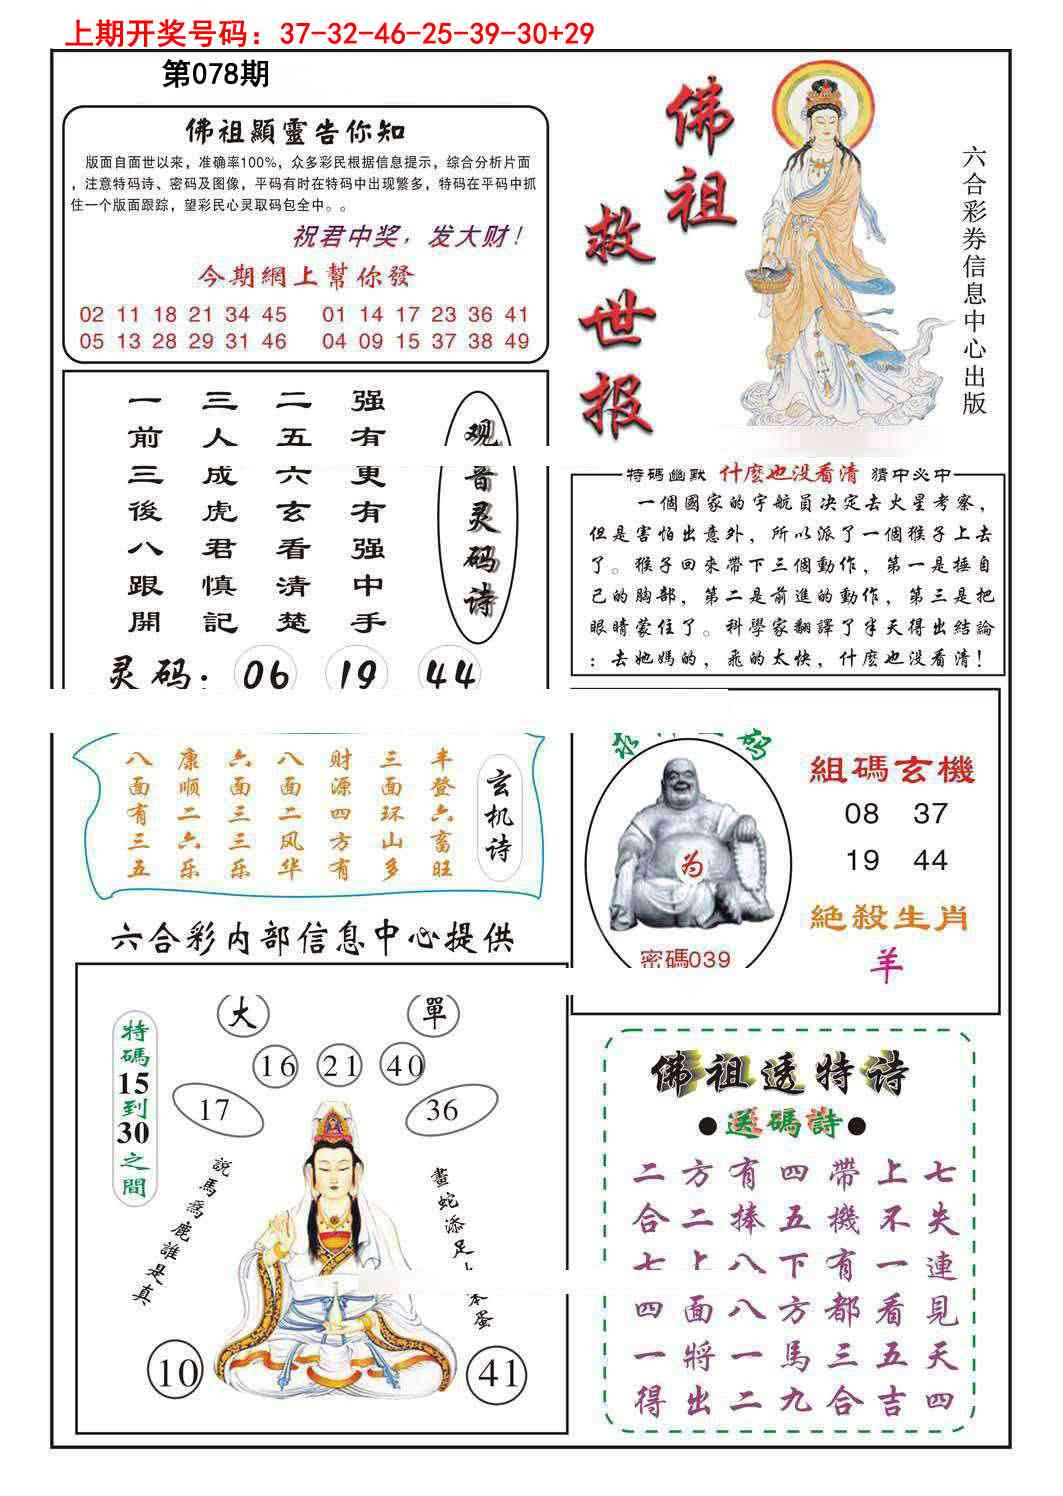 上期开奖号码：37-32-46-25-39-30+29
第078期
佛祖顯靈告你知
版面自面世以来，准确率100%，众多彩民根据信息提示，综合分析片面
，注意特码诗、密码及图像，平码有时在特码中出现繁多，特码在平码中抓
住一个版面跟踪，望彩民心灵取码包全中。。
祝君中奖，发大财！
今期網上幫你發
02 11 18 21 34 45 01 14 17 23 36 41
05 13 28 29 31 46 04 09 15 37 38 49
佛祖
救世报
六合彩券信息中心出版
一三二强
前人五有
三成六更
後虎玄有
八君看强
跟慎清中
開記楚手
观音灵码诗
灵码：06 19 44
特碼幽默 什麽也没看清 猜中必中
一個國家的宇航員决定去火星考察，
但是害怕出意外，所以派了一個猴子上去
了。猴子回來帶下三個動作，第一是捶自
己的胸部，第二是前進的動作，第三是把
眼睛蒙住了。科學家翻譯了半天得出結論
：去她媽的，飛的太快，什麽也没看清！
八康六八财三丰
面顺面面源面登
有二三二四环六
三六三风方山畜
五乐乐华有多旺
玄机诗
码
为
密碼039
組碼玄機
08 37
19 44
絕殺生肖
羊
六合彩内部信息中心提供
大 單
16 21 40
17 36
特碼15到30之間
説馬爲鹿誰是真
畫蛇添足
笨蛋
10 41
佛祖透特诗
●送碼詩●
二方有四帶上七
合二捧五機不失
七上八下有一連
四面八方都看見
一將一馬三五天
得出二九合吉四